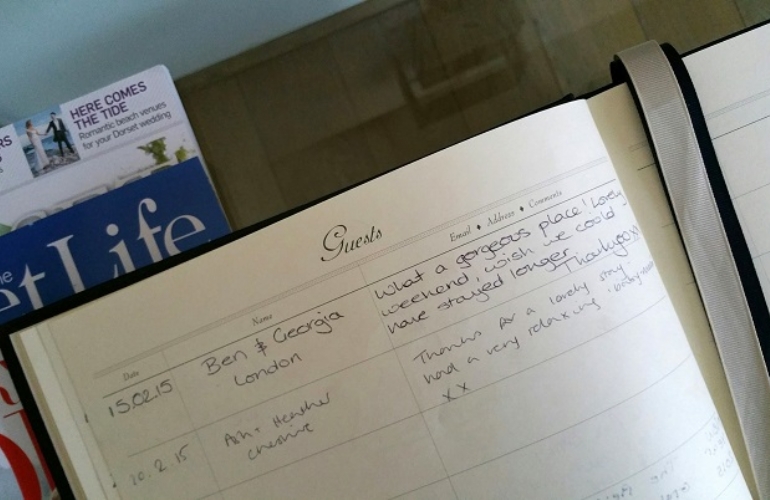 HERE COMES
THE TIDE
Romantic beach venues
for your Dorset wedding
Life
Guests
Date
Name
Email ♦ Address ♦ Comments
15.02.15
Ben & Georgia
London
What a gorgeous place! Lovely
weekend, wish we could
have stayed longer.
Thankyou xx
20.2.15
Ash + Heather
Cheshire
Thanks for a lovely stay
had a very relaxing
xx